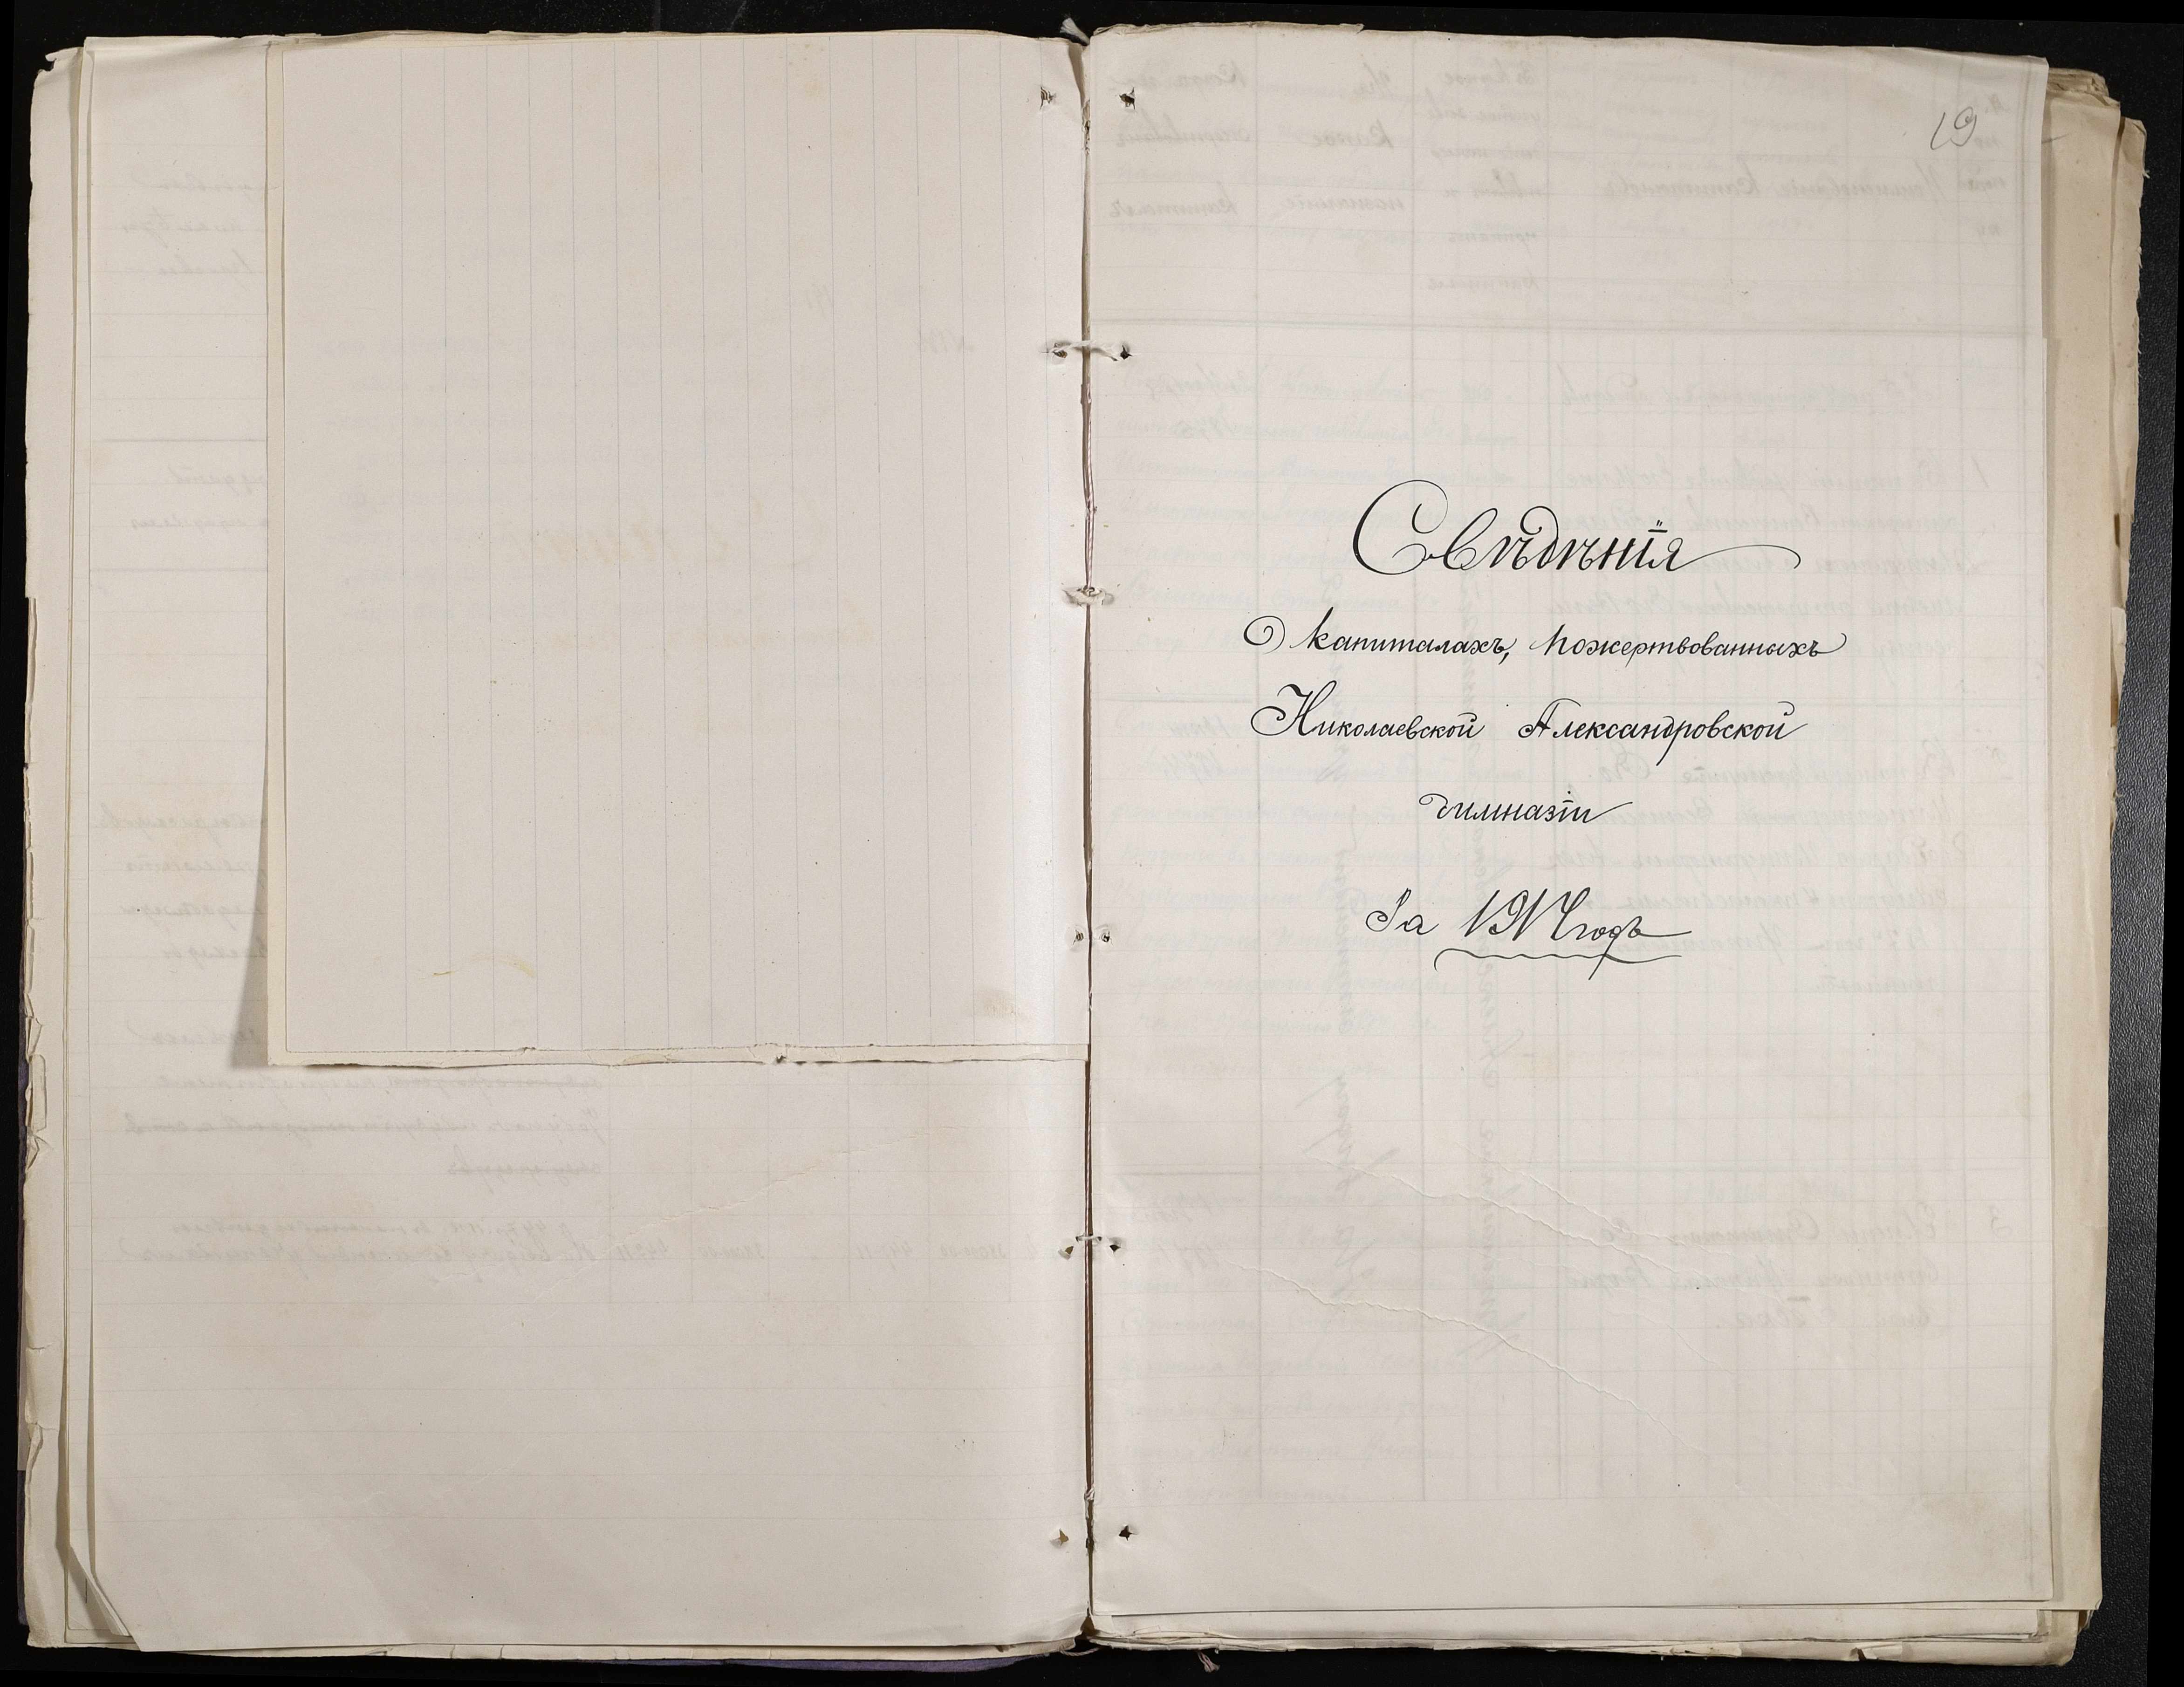 19
Свѣдѣнія
О капиталахъ, пожертвованныхъ
Николаевской Александровской
гимназіи
За 1914 годъ